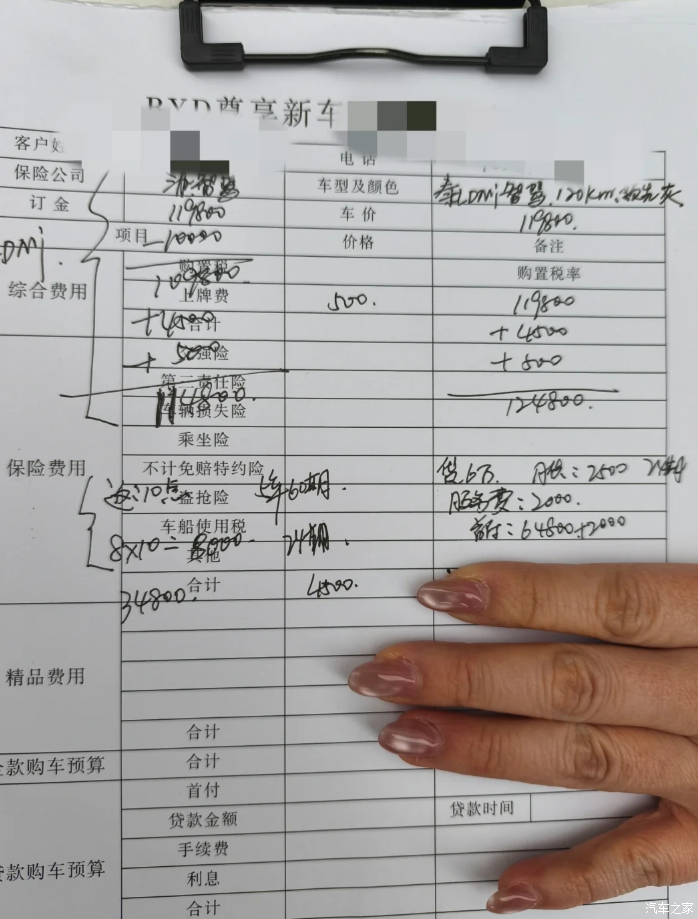 BYD尊享新车
客户姓
电话
保险公司
智驾
车型及颜色
秦LDMi智驾.120Km.
订金
119800
车价
119800.
DMi.
项目
-10000
价格
备注
购置税
109800
购置税率
综合费用
上牌费
500.
119800
+4500
合计
+4500
+500
交强险
+500
第三责任险
114800.
124800.
车辆损失险
乘坐险
保险费用
不计免赔特约险
贷6万. 月供:2500 24期
返:10点
盗抢险
5年60期.
服务费:2000.
车船使用税
首付:64800+2000
8x10=8000
24期.
其他
34800.
合计
4500.
精品费用
合计
全款购车预算
合计
首付
贷款金额
贷款时间
手续费
贷款购车预算
利息
合计
汽车之家